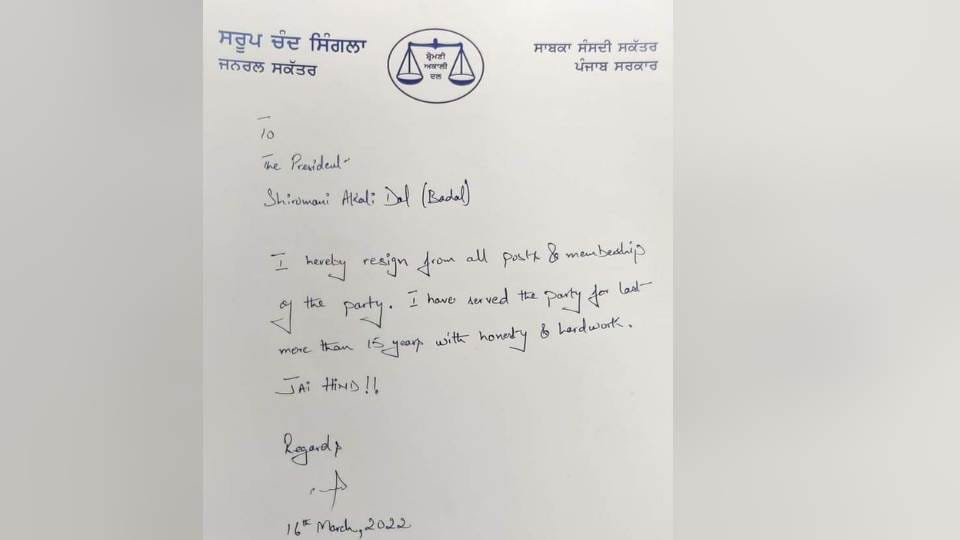 ਸਰੂਪ ਚੰਦ ਸਿੰਗਲਾ
ਜਨਰਲ ਸਕੱਤਰ
ਸ਼੍ਰੋਮਣੀ
ਅਕਾਲੀ
ਦਲ
ਸਾਬਕਾ ਸੰਸਦੀ ਸਕੱਤਰ
ਪੰਜਾਬ ਸਰਕਾਰ
To
The President
Shiromani Akali Dal (Badal)
I hereby resign from all posts & membership
of the party. I have served the party for last
more than 15 years with honesty & hardwork.
JAI HIND!!
Regards
16th March, 2022